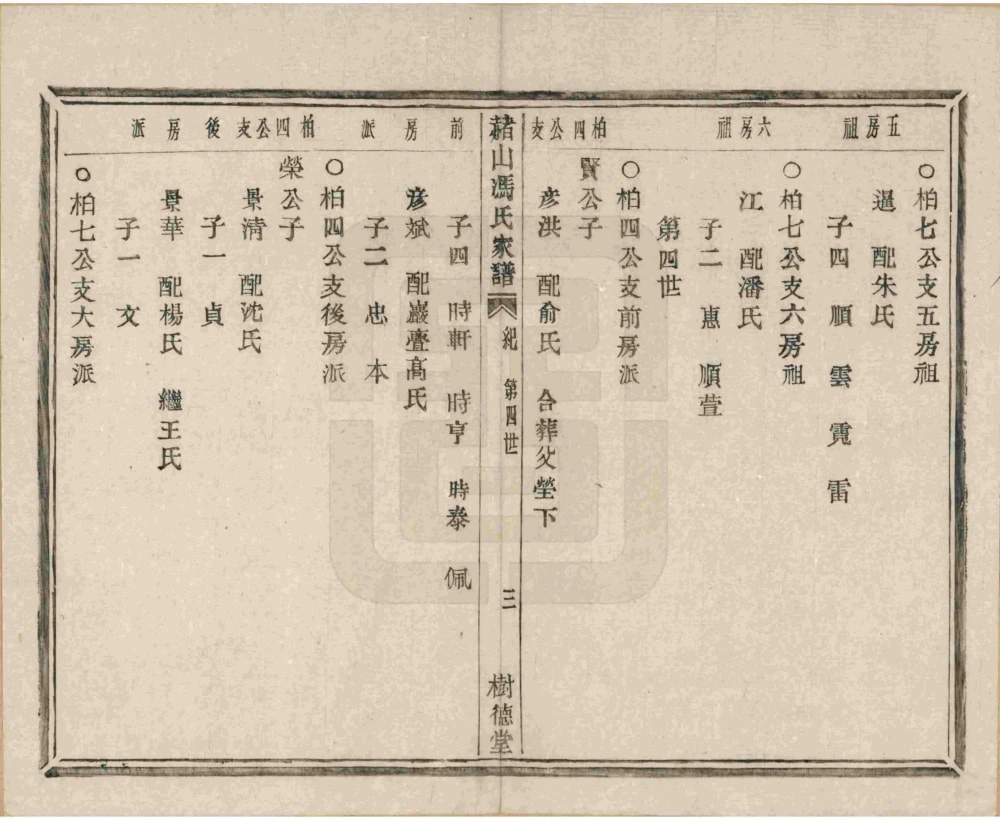 五房祖
○柏七公支五房祖
暹 配朱氏
子四 順 雲 霓 雷
六房祖
○柏七公支六房祖
江 配潘氏
子二 惠 順萱
第四世
柏四公支
○柏四公支前房派
賢公子
彦洪 配俞氏 合葬父塋下
赭山馮氏家譜 紀 第四世 三 樹德堂
前房派
子四 時軒 時亨 時泰 佩
彦斌 配巖壼高氏
子二 忠 本
柏四公支後房派
○柏四公支後房派
榮公子
景清 配沈氏
子一 貞
景華 配楊氏 繼王氏
子一 文
○柏七公支大房派